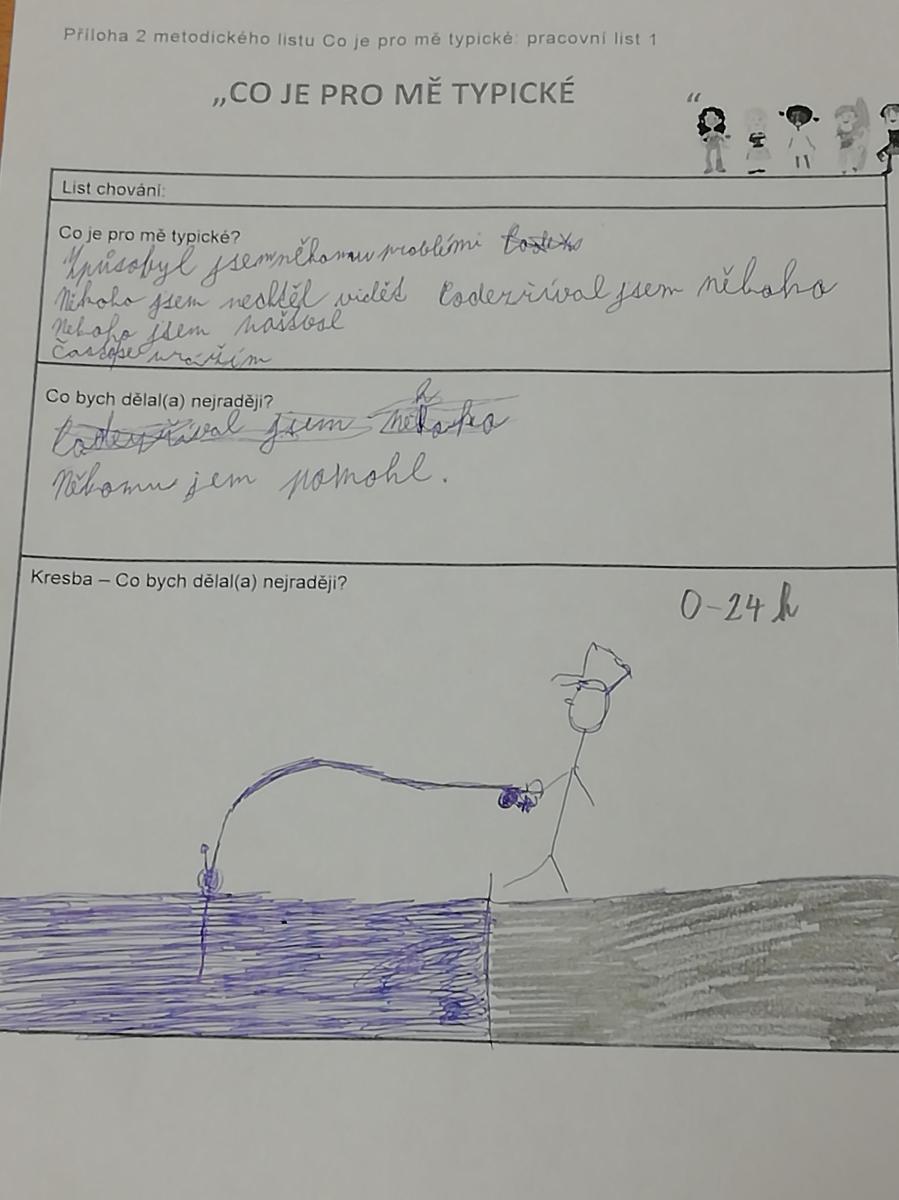 Příloha 2 metodického listu Co je pro mě typické: pracovní list 1
„CO JE PRO MĚ TYPICKÉ “
List chování:
Co je pro mě typické?
Způsobyl jsem někomu problémi
Někoho jsem nechtěl vidět Podezříval jsem někoho
Nekoho jsem naštval
Často se uražím
Co bych dělal(a) nejraději?
Podezříval jsem někoho
Někomu jem pomohl.
Kresba – Co bych dělal(a) nejraději?
0-24 h